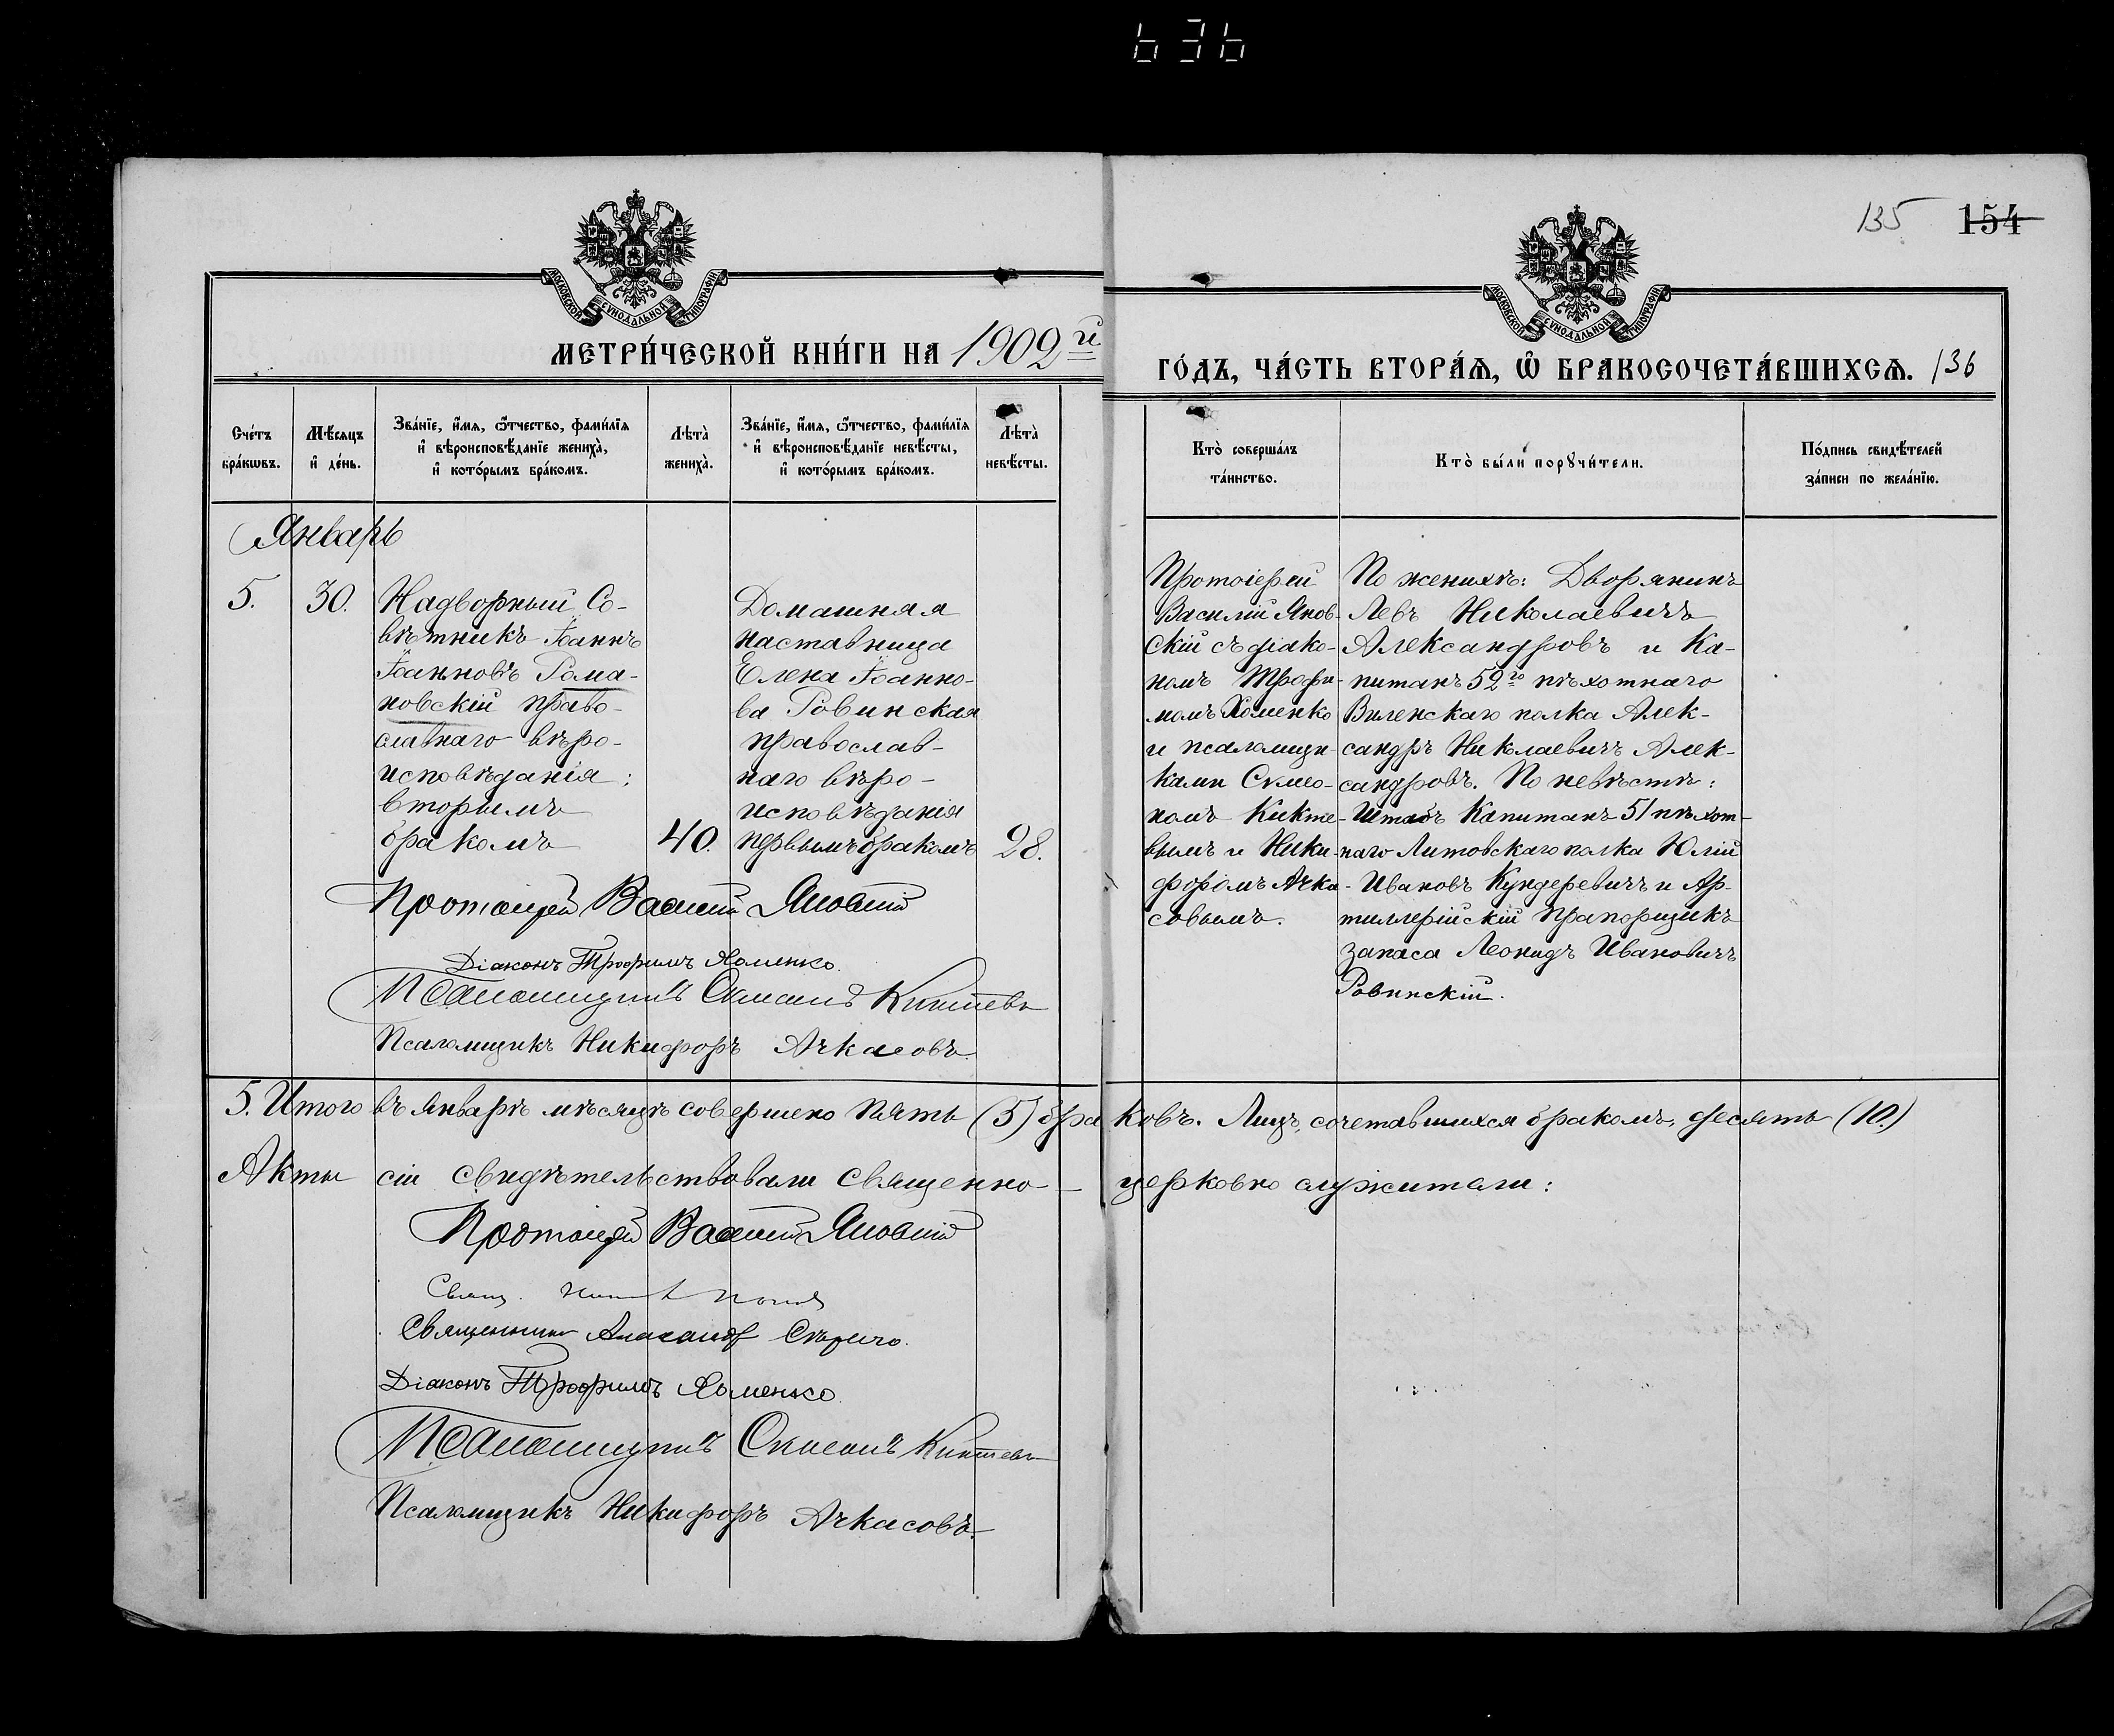 636
135 154
МОСКОВСКОЙ СУНОДАЛЬНОЙ ТИПОГРАФІИ
МОСКОВСКОЙ СУНОДАЛЬНОЙ ТИПОГРАФІИ
МЕТРИ́ЧЕСКОЙ КНИ́ГИ НА 1902 й
ГО́ДЪ, ЧА́СТЬ ВТОРА́Ѧ, Ѽ БРАКОСОЧЕТА́ВШИХСѦ. 136
Сче́тъ
бра́кѡвъ.
Мѣ́сѧцъ
и҆ де́нь.
Зва́нїе, и҆́мѧ, ѻ҆́тчество, фами́лїѧ
и҆ вѣроисповѣ́данїе жениха̀,
и҆ кото́рымъ бра́комъ.
Лѣта̀
жениха̀.
Зва́нїе, и҆́мѧ, ѻ҆́тчество, фами́лїѧ
и҆ вѣроисповѣ́данїе невѣ́сты,
и҆ кото́рымъ бра́комъ.
Лѣта̀
невѣ́сты.
Кто̀ соверша́лъ
та́инство.
Кто̀ бы́ли порꙋчи́тели.
По́дпись свидѣ́телей
за́писи по жела́нїю.
Январь
5.
30.
Надворный Со-
вѣтникъ Іоаннъ
Іоанновъ Рома-
новскій право-
славнаго вѣро-
исповѣданія:
вторымъ
бракомъ
40.
Домашняя
наставница
Елена Іоанно-
ва Ровинская
православ-
наго вѣро-
исповѣданія
первымъ бракомъ
28.
Протоіерей
Василій Янов-
скій съ діако-
номъ Трофи-
момъ Хоменко
и псаломщи-
ками Симео-
номъ Кикте-
вымъ и Ники-
форомъ Ачка-
совымъ.
По женихѣ: Дворянинъ
Левъ Николаевичъ
Александровъ и Ка-
питанъ 52го пѣхотнаго
Виленскаго полка Алек-
сандръ Николаевичъ Алек-
сандровъ. По невѣстѣ:
Штабъ Капитанъ 51 пѣхот-
наго Литовскаго полка Юлій
Ивановъ Кундеревичъ и Ар-
тиллерійскій прапорщикъ
запаса Леонидъ Ивановичъ
Ровинскій.
Протоіерей Василій Яновскій
Діаконъ Трофимъ Хоменко.
Псаломщикъ Симеонъ Киктевъ
Псаломщикъ Никифоръ Ачкасовъ.
5. Итого въ январѣ мѣсяцѣ совершено пять (5) браковъ. Лицъ, сочетавшихся бракомъ, десять (10.)
Акты сіи свидѣтельствовали священно-церковно служители:
Протоіерей Василій Яновскій
Свящ.
Священникъ Александръ
Діаконъ Трофимъ Хоменко.
Псаломщикъ Симеонъ Киктевъ
Псаломщикъ Никифоръ Ачкасовъ.